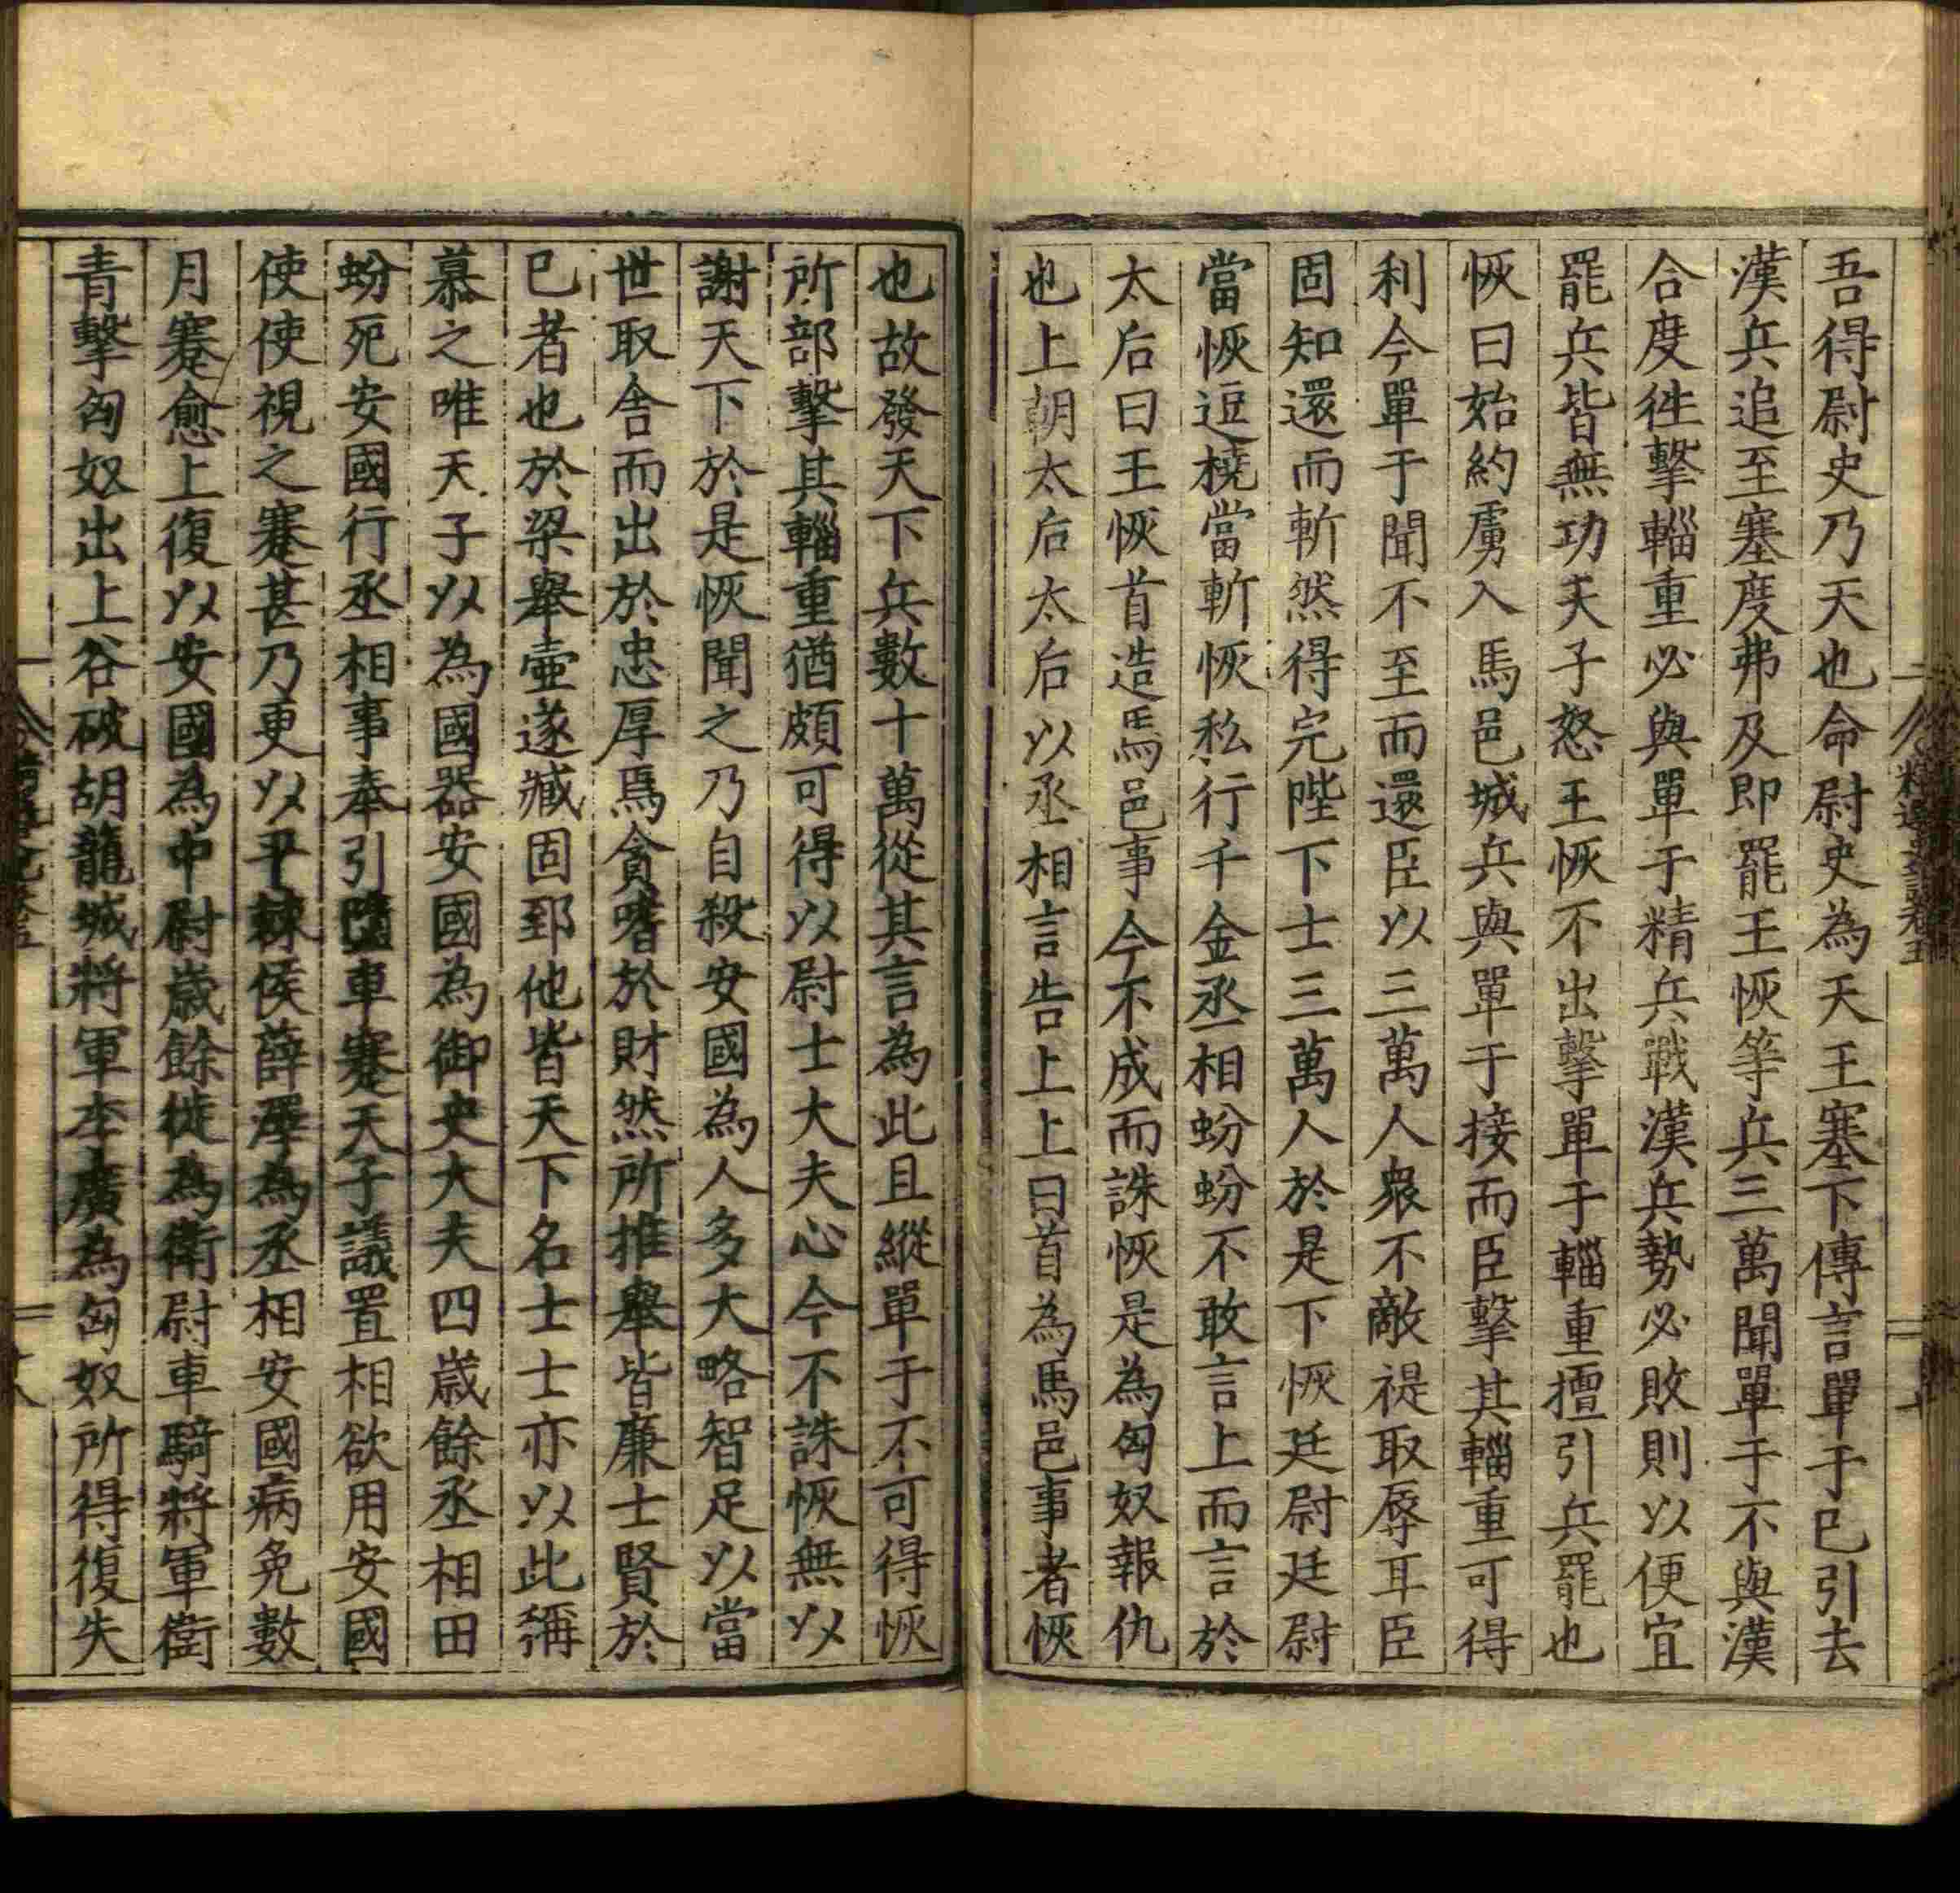 吾得尉史乃天也命尉史為天王塞下傳言單于已引去
漢兵追至塞度弗及即罷王恢等兵三萬聞單于不與漢
合度徃擊輜重必與單于精兵戰漢兵勢必敗則以便宜
罷兵皆無功天子怒王恢不出擊單于輜重擅引兵罷也
恢曰始約虜入馬邑城兵與單于接而臣擊其輜重可得
利今單于聞不至而還臣以三萬人衆不敵禔取辱耳臣
固知還而斬然得完陛下士三萬人於是下恢廷尉廷尉
當恢逗橈當斬恢私行千金丞相蚡蚡不敢言上而言於
太后曰王恢首造馬邑事今不成而誅恢是為匈奴報仇
也上朝太后太后以丞相言告上上曰首為馬邑事者恢
也故發天下兵數十萬從其言為此且縱單于不可得恢
所部擊其輜重猶頗可得以尉士大夫心今不誅恢無以
謝天下於是恢聞之乃自殺安國為人多大略智足以當
世取舍而出於忠厚焉貪嗜於財然所推舉皆廉士賢於
已者也於梁舉壷遂臧固郅他皆天下名士士亦以此稱
慕之唯天子以為國器安國為御史大夫四歲餘丞相田
蚡死安國行丞相事奉引墮車蹇天子議置相欲用安國
使使視之蹇甚乃更以平棘侯薛澤為丞相安國病免數
月蹇愈上復以安國為中尉歲餘徙為衛尉車騎將軍衛
青擊匈奴出上谷破胡龍城將軍李廣為匈奴所得復失